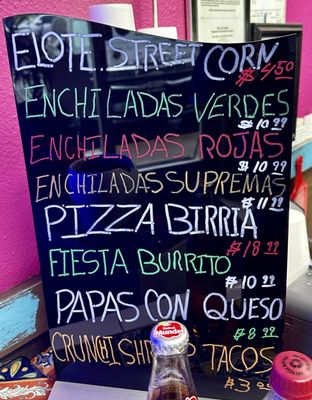 ELOTE. STREET CORN
$4.50
ENCHILADAS VERDES
$10.99
ENCHILADAS ROJAS
$10.99
ENCHILADAS SUPREMAS
$11.99
PIZZA BIRRIA
$18.99
FIESTA BURRITO
$10.99
PAPAS CON QUESO
$8.99
CRUNCHI SHRIMP TACOS
$3.99
Mundet